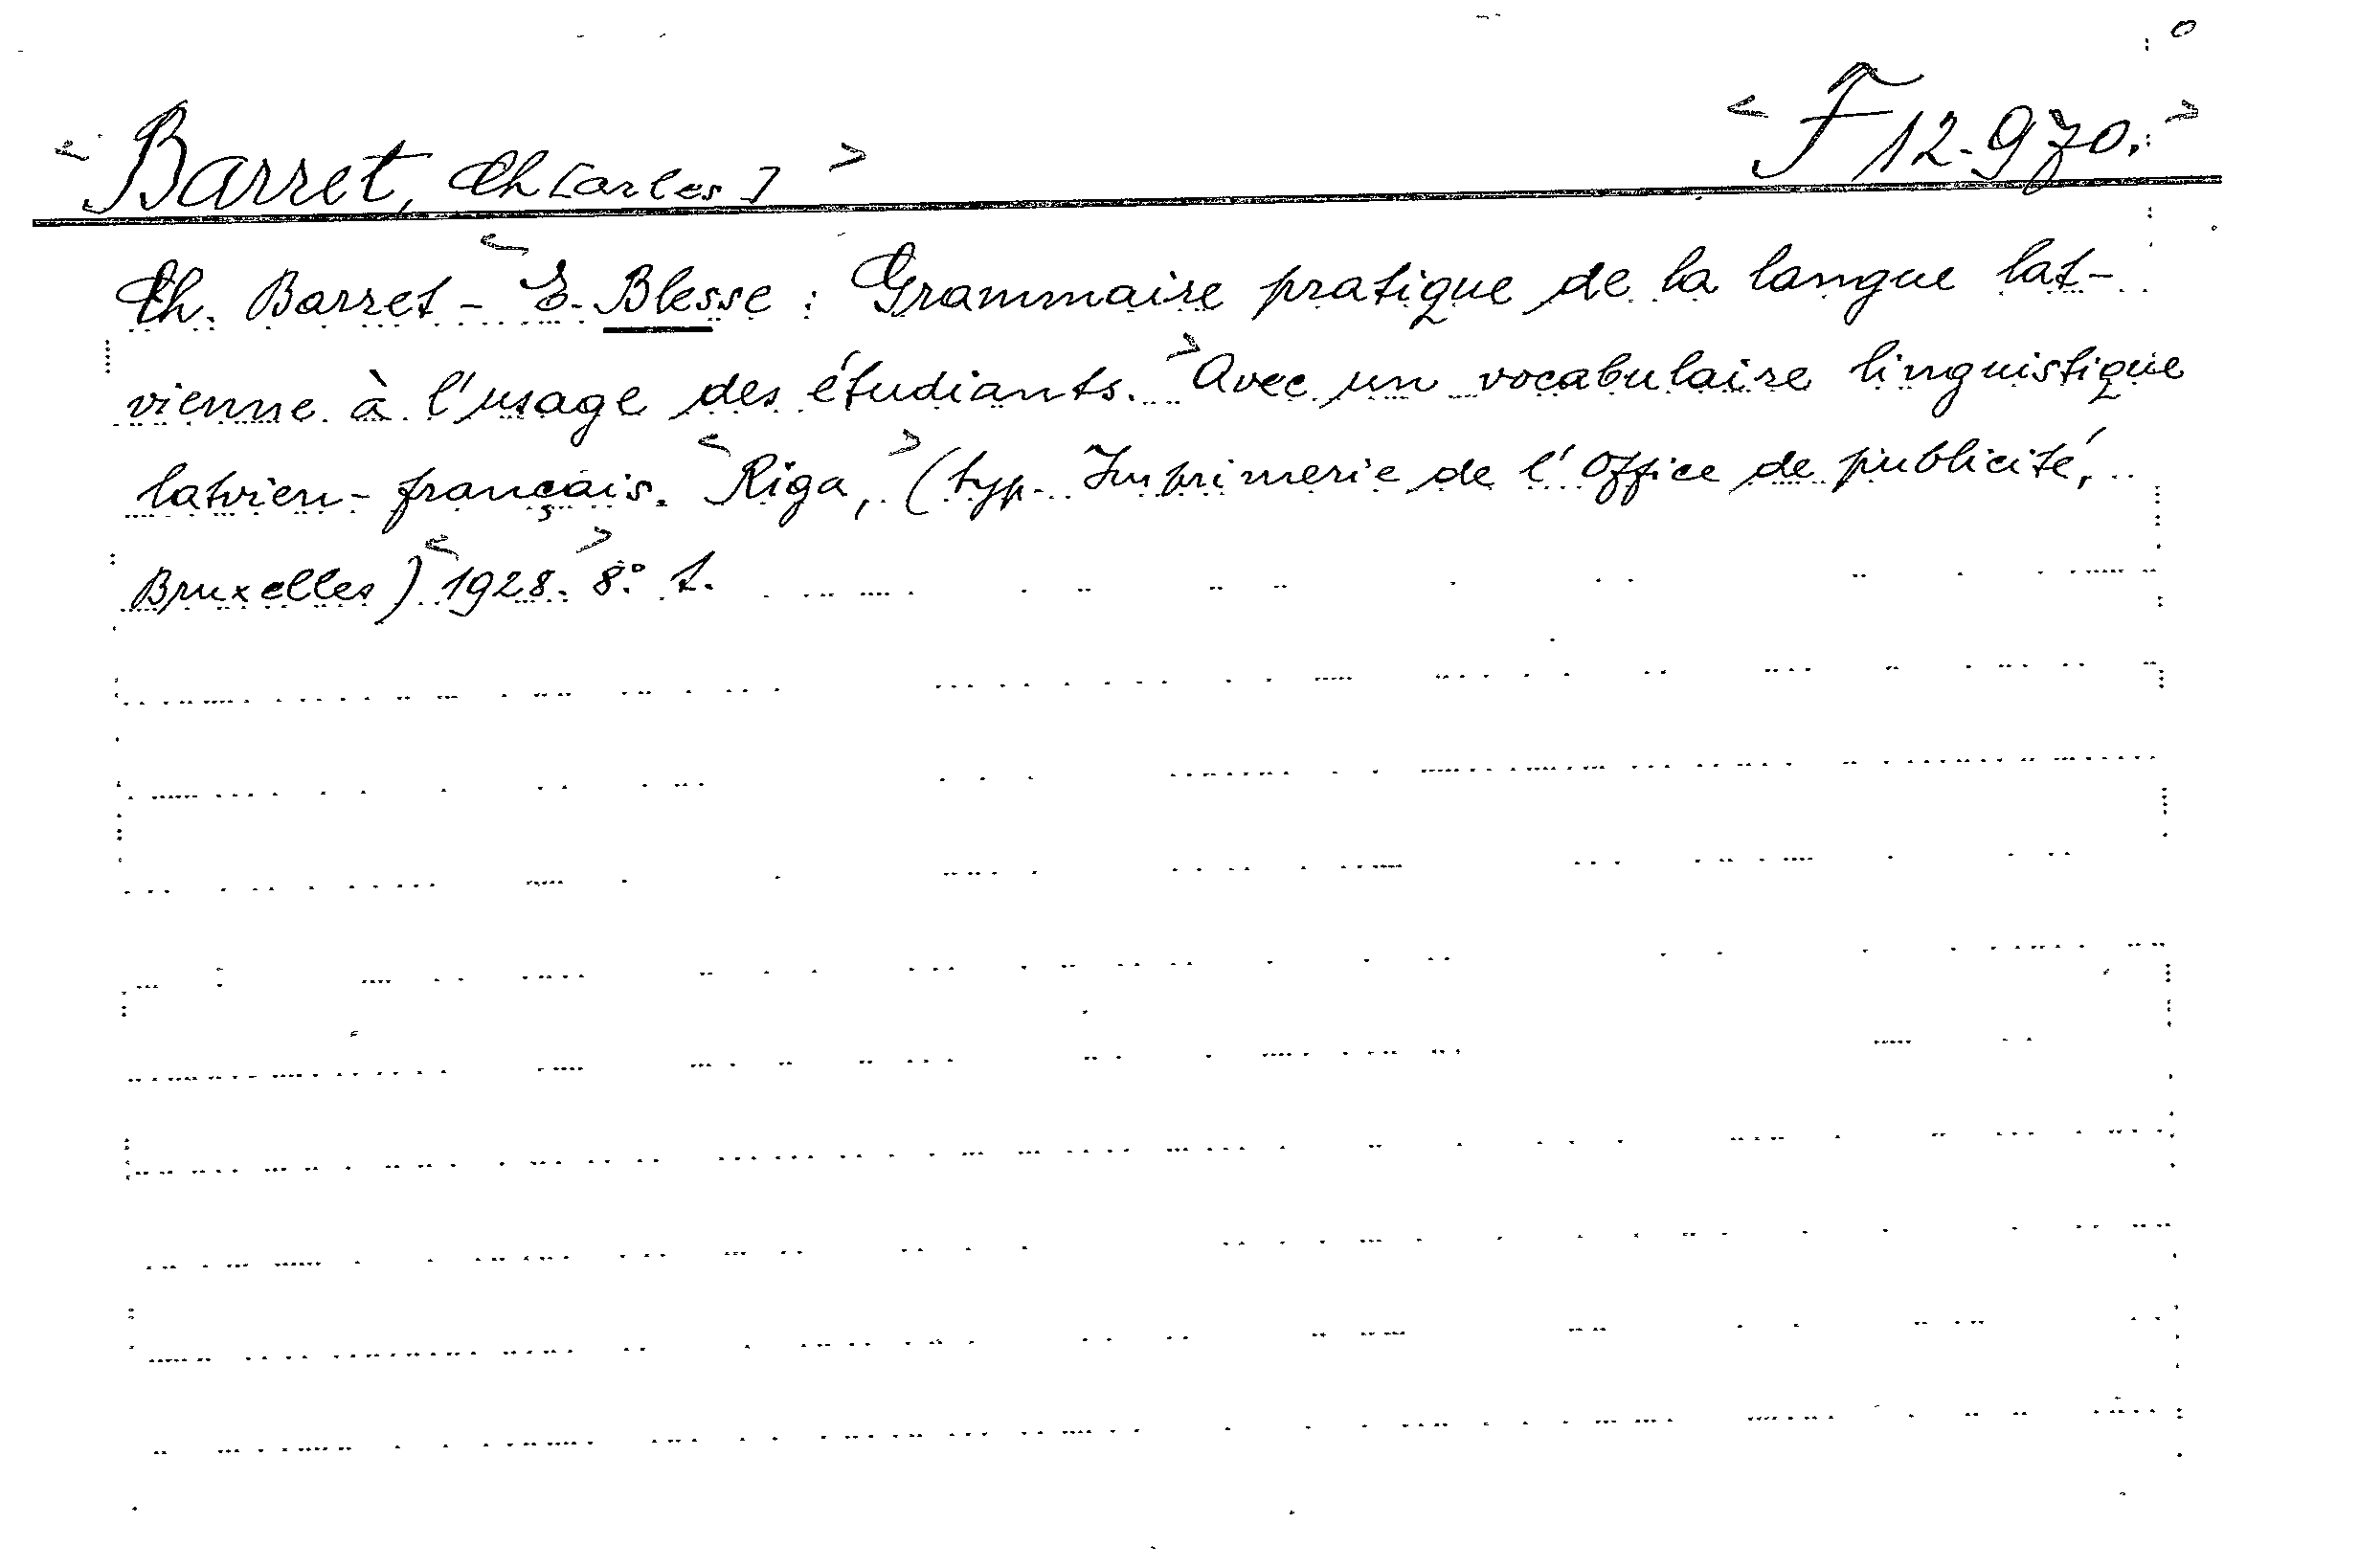 < Barret, Ch[arles] > < F 12-970. >
Ch. Barret - < E. Blesse : Grammaire pratique de la langue lat-
vienne à l'usage des étudiants. > Avec un vocabulaire linguistique
latvien-français. < Riga, > (typ. Imprimerie de l'Office de publicité,
Bruxelles) < 1928. > 8° 1.